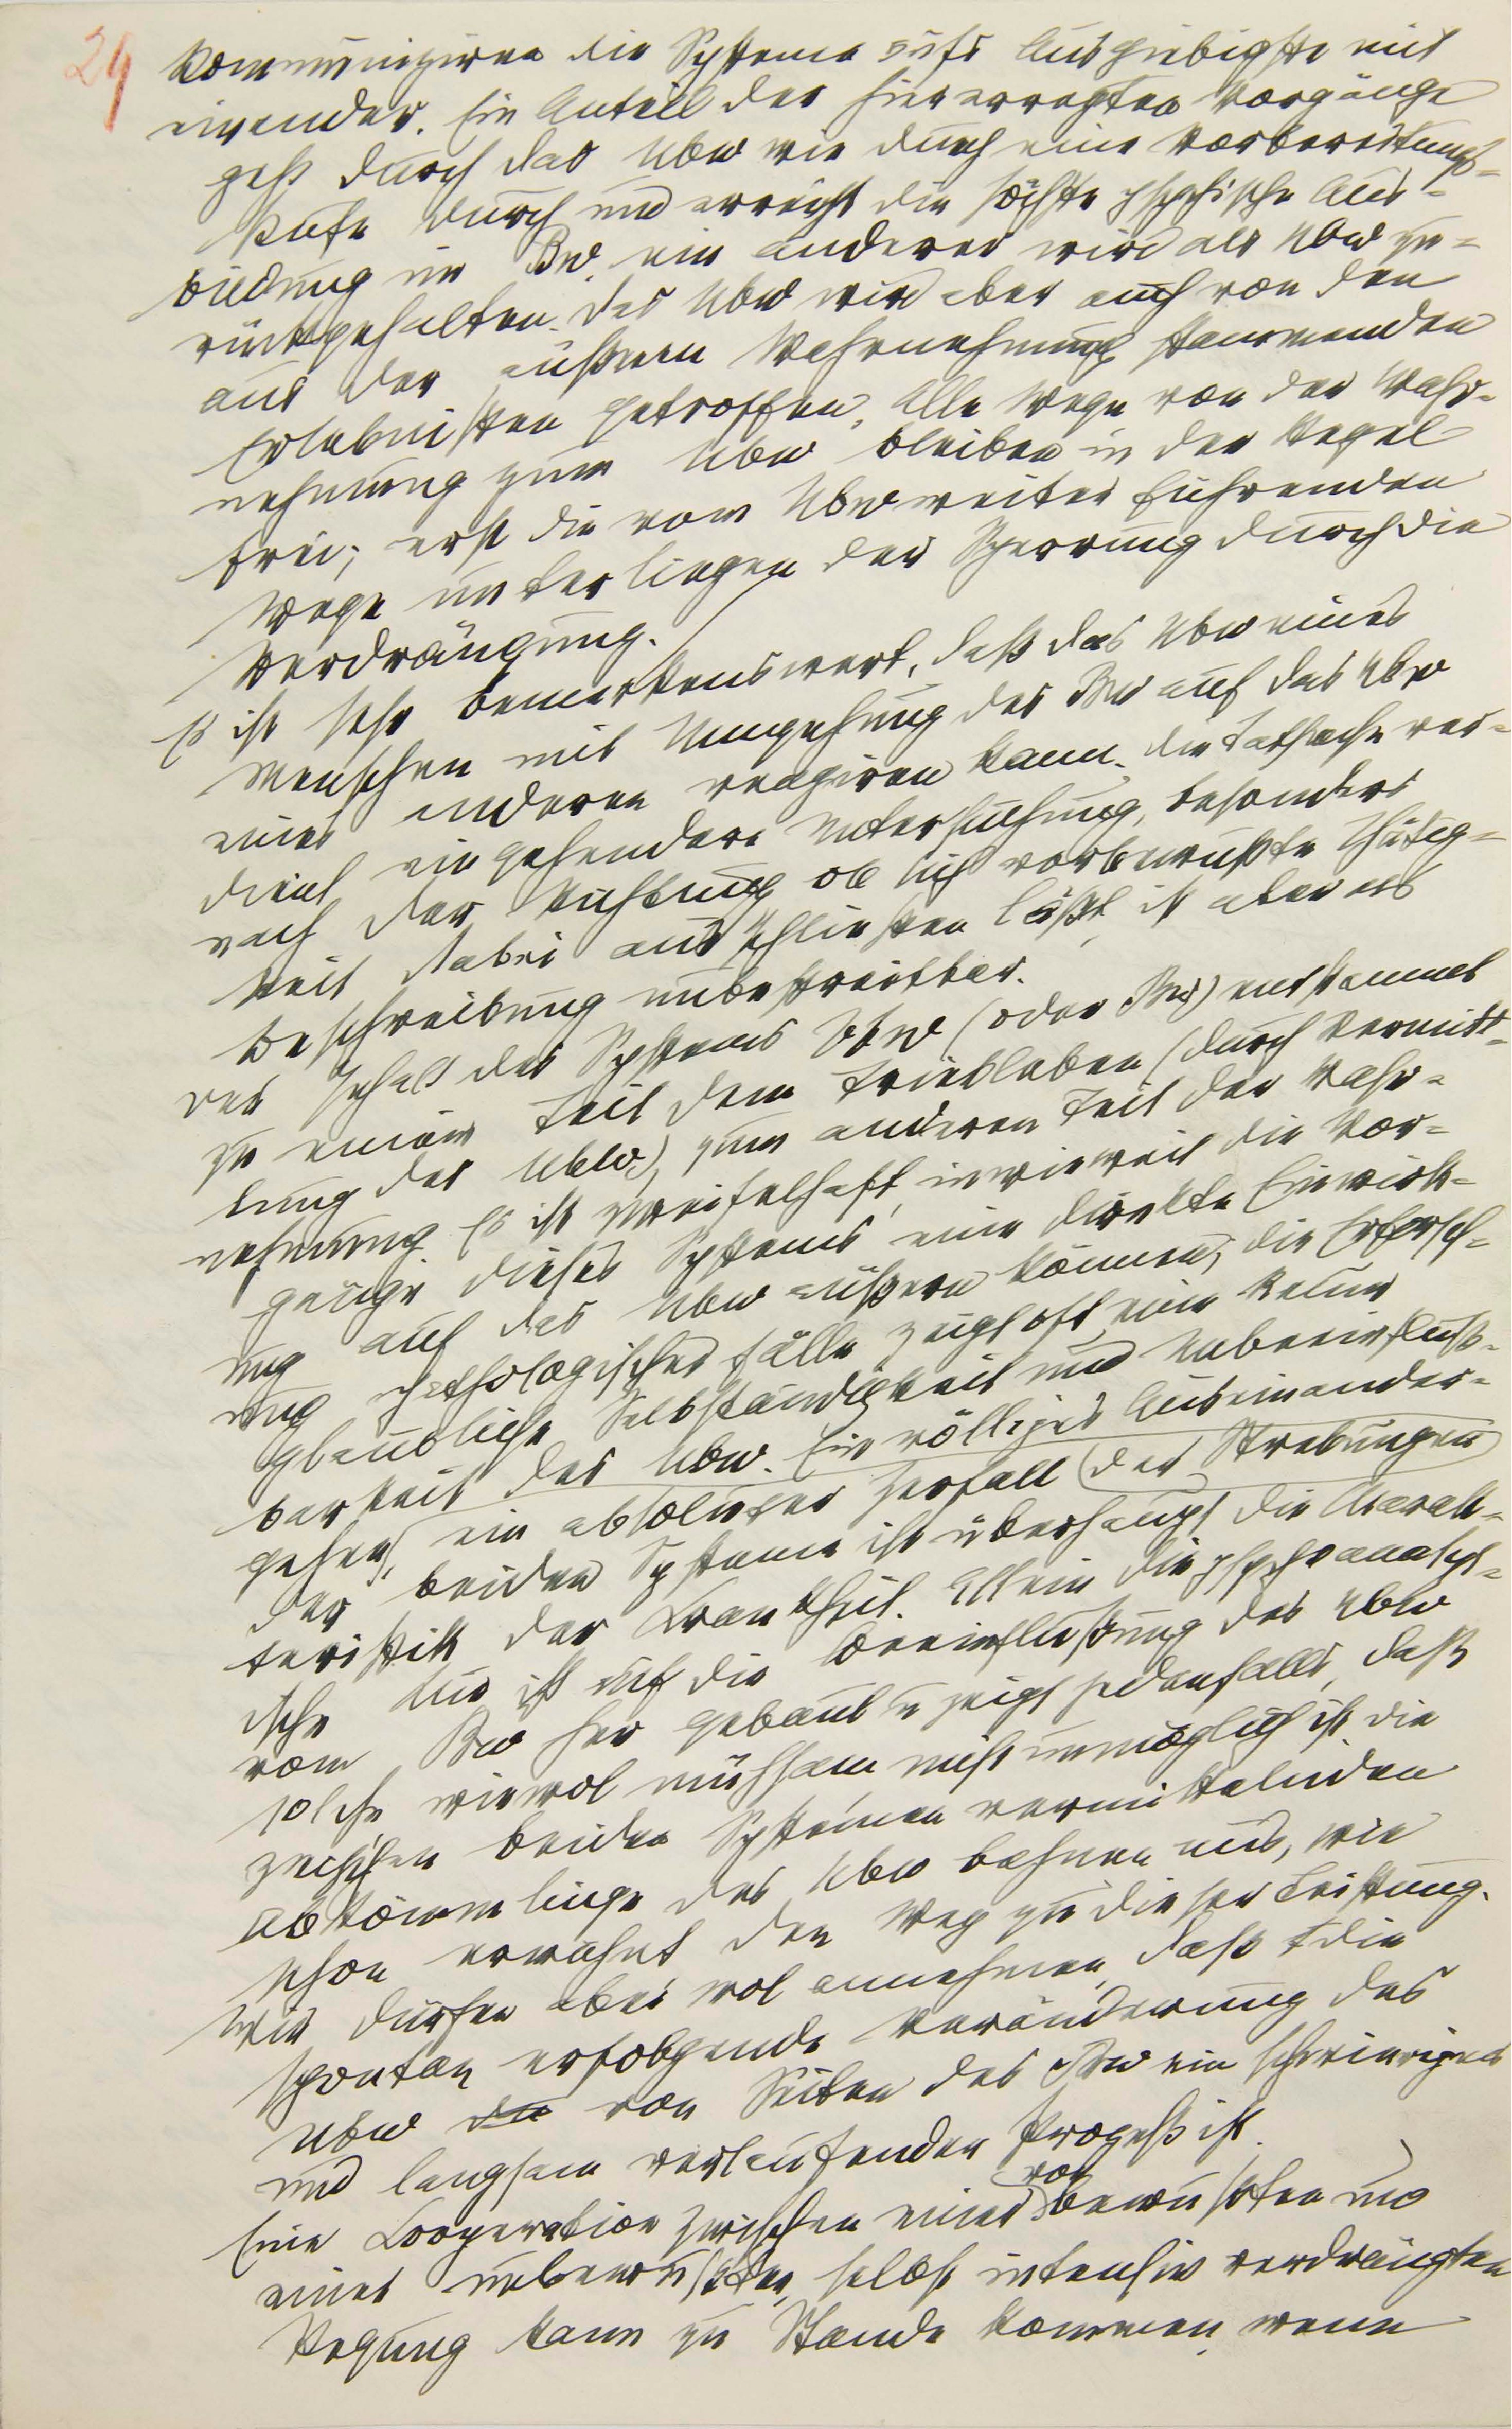 29
kommuniziren die Systeme aufs Ausgiebigste mit
einander. Ein Anteil der hier erregten Vorgänge
geht durch das Ubw wie durch eine Vorbereitungs-
stufe durch und erreicht die höchste psychische Aus-
bildung im Bw, ein anderer wird als Ubw zu-
rückgehalten. Das Ubw wird aber auch von den
aus der äußeren Wahrnehmung stammenden
Erlebnissen getroffen. Alle Wege von der Wahr-
nehmung zum Ubw bleiben in der Regel
frei; erst die vom Ubw weiter führenden
Wege unterliegen der Sperrung durch die
Verdrängung.
Es ist sehr bemerkenswert, daß das Ubw eines
Menschen mit Umgehung des Bw auf das Ubw
eines anderen reagiren kann. Die Tatsache ver-
dient eingehendere Untersuchung, besonders
nach der Richtung ob sich vorbewußte Thätig-
keit dabei ausschließen läßt, ist aber als
Beschreibung unbestreitbar.
Der Inhalt des Systems Vbw (oder Bw) entstammt
zu einem Teil dem Triebleben (durch Vermitt-
lung des Ubw), zum anderen Teil der Wahr-
nehmung. Es ist zweifelhaft, inwieweit die Vor-
gänge dieses Systems eine direkte Einwirk-
ung auf das Ubw äußern können; die Erforsch-
ung pathologischer Fälle zeigt oft eine kaum
glaubliche Selbständigkeit und Unbeeinfluß-
barkeit des Ubw. Ein völliges Auseinander-
gehen, ein absoluter Zerfall (der Strebungen)
der beiden Systeme ist überhaupt die Charak-
teristik der Krankheit. Allein die psychoanalyt-
ische Kur ist auf die Beeinflußung des Ubw
vom Bw her gebaut u zeigt jedenfalls, daß
solche, wiewol mühsam nicht unmöglich ist. Die
zwischen beiden Systemen vermittelnden
Abkömmlinge des Ubw bahnen uns, wie
schon erwähnt den Weg zu dieser Leistung.
Wir dürfen aber wol annehmen, daß die
spontan erfolgende Veränderung des
Ubw von Seiten des Bw ein schwieriger
und langsam verlaufender Prozeß ist.
Eine Cooperation zwischen einer vorbewußten und
einer unbewußten, selbst intensiv verdrängten
Regung kann zu Stande kommen, wenn